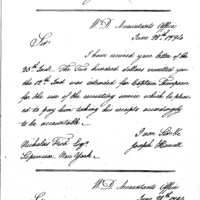 W D. Accountants Office
June 28th 1794
Sir
I have received your letter of the
20th Inst. The Two hundred dollars remitted you
the 12th Inst was intended for Captain
for the use of the recruiting service which be pleas-
ed to pay him taking his receipts accordingly
to be accountable.
I am Sir &c
Nicholas Fish Esqr. Joseph Howell
Supervisor New York.
W D. Accountants Office
June 28th 1794